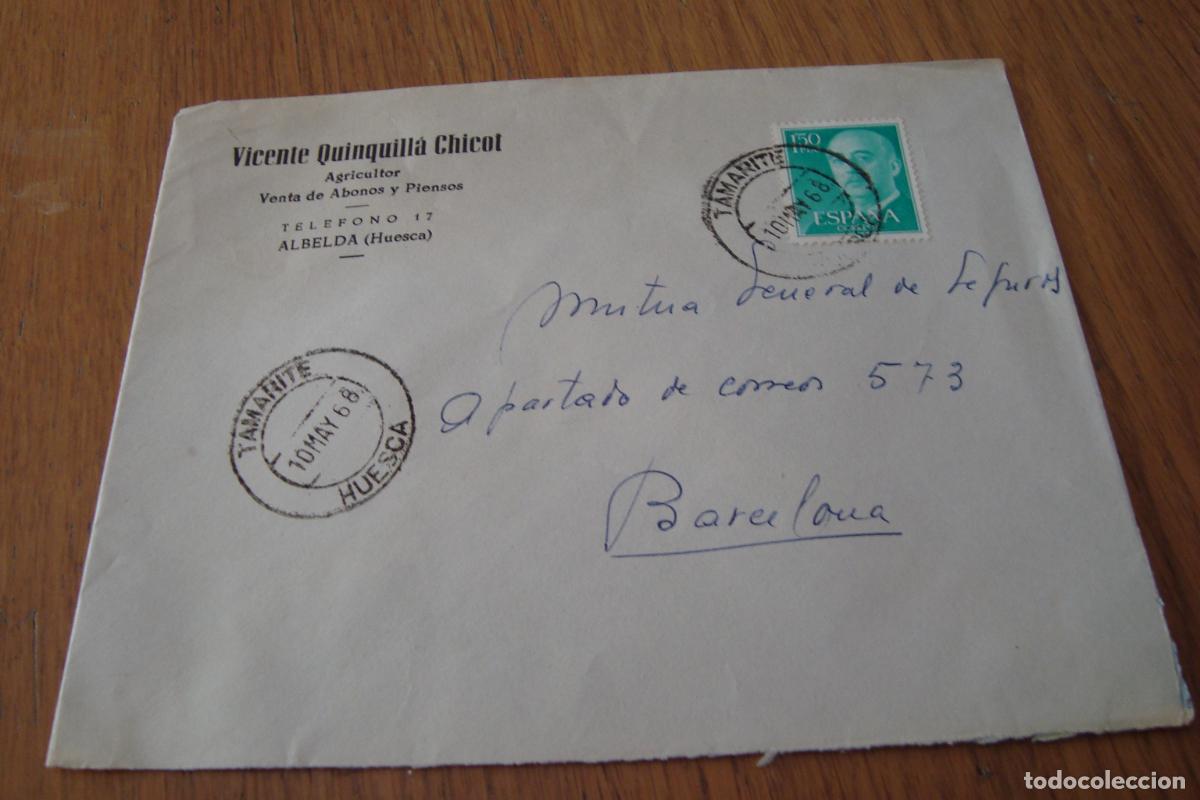 Vicente Quinquillá Chicot
Agricultor
Venta de Abonos y Piensos
TELEFONO 17
ALBELDA (Huesca)
TAMARITE
10 MAY 68
1'50
PTA
ESPAÑA
CORREOS
Mutua General de Seguros
Apartado de correos 573
Barcelona
TAMARITE
10 MAY 68
HUESCA
todocoleccion